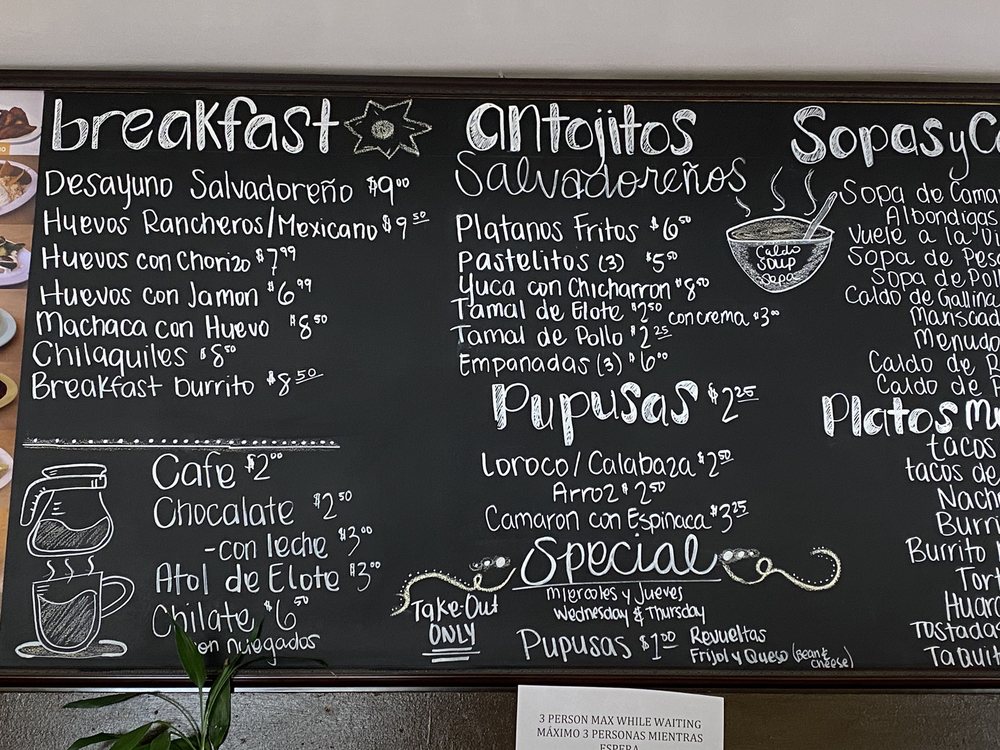 breakfast
Desayuno Salvadoreño $9.00
Huevos Rancheros/Mexicano $9.50
Huevos con Chorizo $7.99
Huevos con Jamon $6.99
Machaca con Huevo $8.50
Chilaquiles $8.50
Breakfast burrito $8.50
Cafe $2.00
Chocalate $2.50
-con leche $3.00
Atol de Elote $3.00
Chilate $6.50
con nuegados
antojitos
Salvadoreños
Platanos Fritos $6.50
Pastelitos (3) $5.50
Yuca con Chicharron $8.50
Tamal de Elote $2.50 con crema $3.00
Tamal de Pollo $2.25
Empanadas (3) $6.00
Pupusas $2.25
Loroco/Calabaza $2.50
Arroz $2.50
Camaron con Espinaca $3.25
Special
Miercoles y Jueves
Wednesday & Thursday
Take-Out
ONLY
Pupusas $1.00
Revueltas
Frijol y Queso (Bean & cheese)
Caldo
Soup
Sopa
Sopas y
Sopa de
Albondigas
Vuele a la
Sopa de
Sopa de
Caldo de Gallina
Menudo
Caldo de
Caldo de
Platos
tacos
tacos de
Burrito
Tostadas
3 PERSON MAX WHILE WAITING
MÁXIMO 3 PERSONAS MIENTRAS
ESPERA